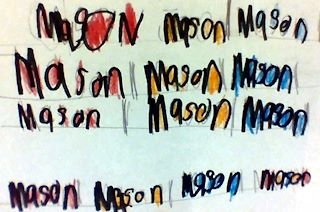 MasON mason Mason
Mason Mason Mason
Mason Mason Mason
mason Mason mason mason